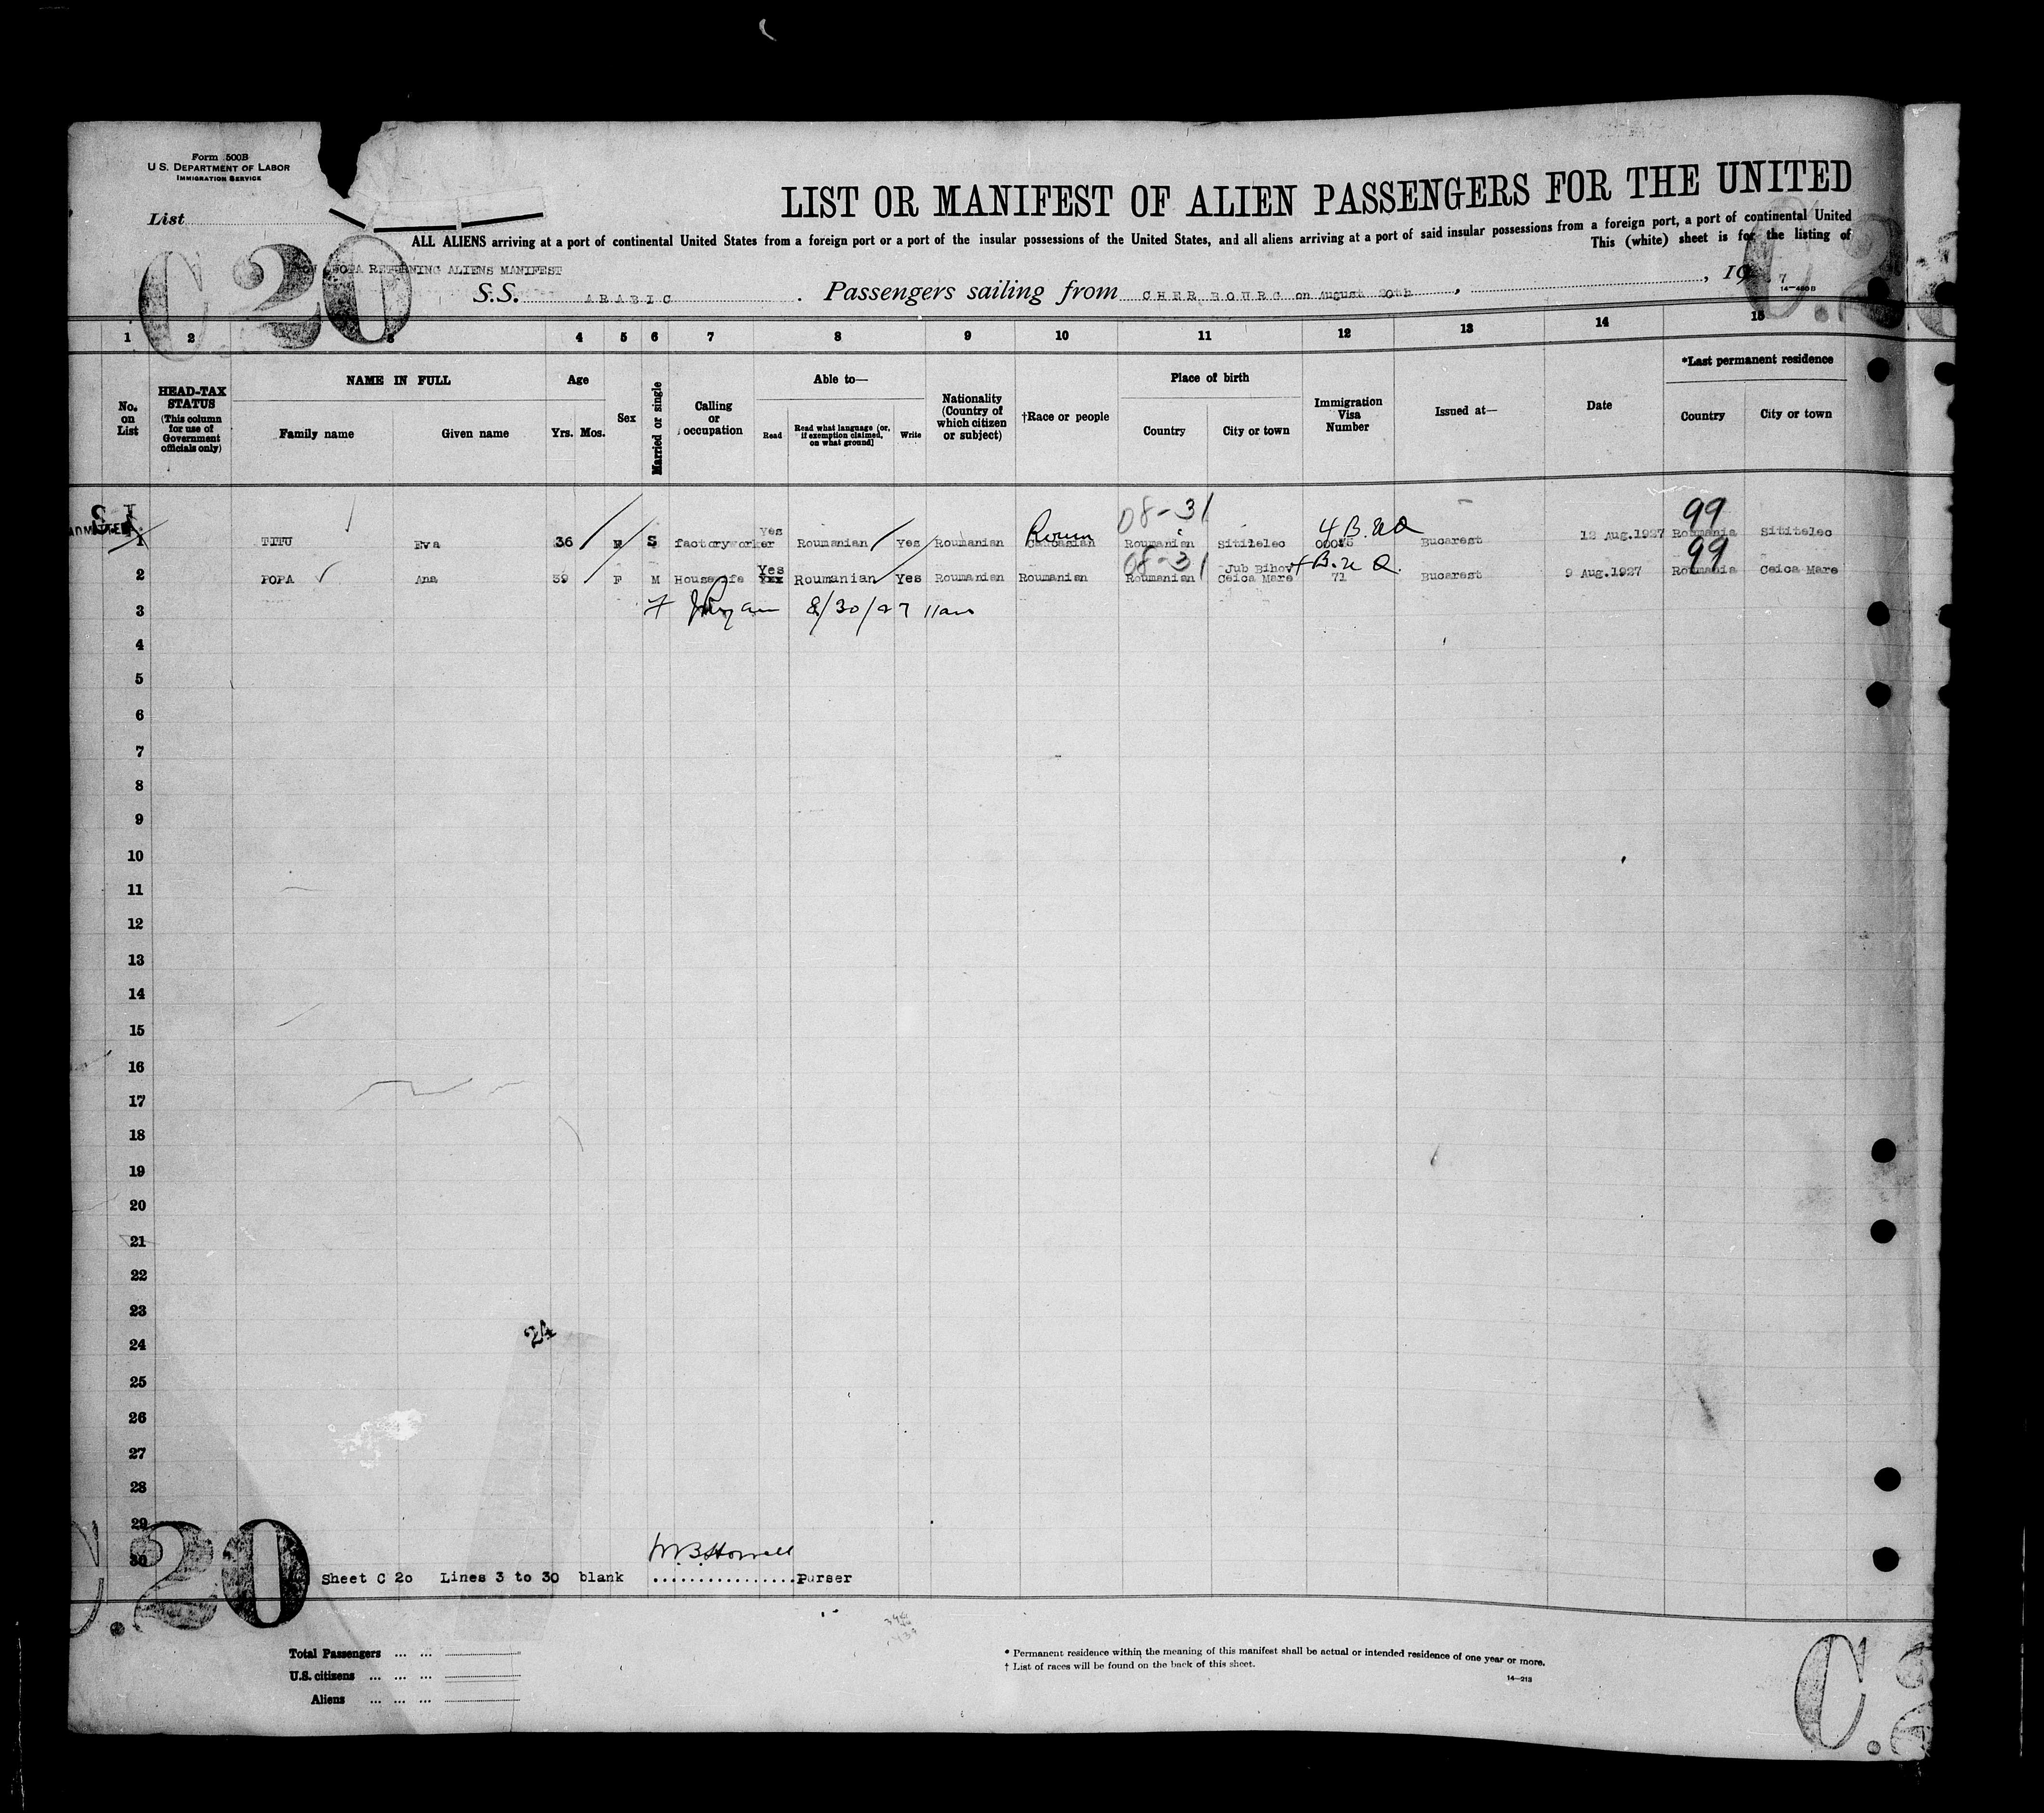 Form 500B
U. S. DEPARTMENT OF LABOR
IMMIGRATION SERVICE
List
LIST OR MANIFEST OF ALIEN PASSENGERS FOR THE UNITED
ALL ALIENS arriving at a port of continental United States from a foreign port or a port of the insular possessions of the United States, and all aliens arriving at a port of said insular possessions from a foreign port, a port of continental United
This (white) sheet is for the listing of
C.20
RETURNING ALIENS MANIFEST
S.S. ARABIC. Passengers sailing from CHERBOURG on August 20th, , 19 7
14—480 B
1 2 3 4 5 6 7 8 9 10 11 12 13 14 15
No. on List
HEAD-TAX STATUS (This column for use of Government officials only)
NAME IN FULL
Family name Given name
Age
Yrs. Mos.
Sex
Married or single
Calling or occupation
Able to—
Read
Read what language (or, if exemption claimed, on what ground)
Write
Nationality (Country of which citizen or subject)
†Race or people
Place of birth
Country City or town
Immigration Visa Number
Issued at—
Date
*Last permanent residence
Country City or town
ADMITTED
08-31 99
1 TITU Eva 36 F S factoryworker Yes Roumanian Yes Roumanian Caucasian Roum Roumanian Sititelec Bucarest 12 Aug.1927 Romania Sititelec
08-31 99
2 POPA Ana 39 F M Housewife Yes Roumanian Yes Roumanian Roumanian Roumanian Jub Bihor Ceica Mare 71 Bucarest 9 Aug.1927 Romania Ceica Mare
3 8/30/27 11am
4
5
6
7
8
9
10
11
12
13
14
15
16
17
18
19
20
21
22
23
24
24
25
26
27
28
29
30
W.B.Howell
C.20
Sheet C 20 Lines 3 to 30 blank ................Purser
Total Passengers ... ...
U.S. citizens ... ... ...
Aliens ... ... ...
* Permanent residence within the meaning of this manifest shall be actual or intended residence of one year or more.
† List of races will be found on the back of this sheet.
14—213
C.2